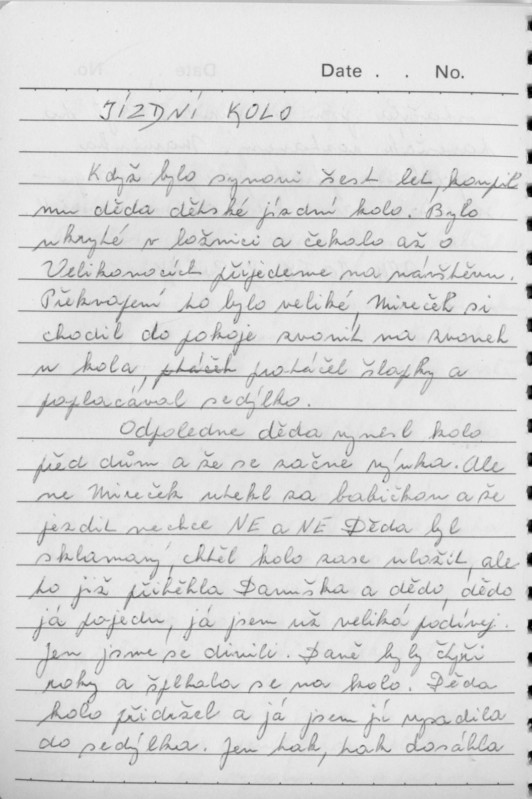 Date . . No.
JÍZDNÍ KOLO
Když bylo synovi šest let, koupil
mu děda dětské jízdní kolo. Bylo
ukryté v ložnici a čekalo až o
Velikonocích přijedeme na návštěvu.
Překvapení to bylo veliké, Mireček si
chodil do pokoje zvonit na zvonek
u kola, protáčel šlapky a
poplacával sedýlko.
Odpoledne děda vynesl kolo
před dům a že se začne výuka. Ale
ne Mireček utekl za babičkou a že
jezdit nechce NE a NE Děda byl
sklamaný, chtěl kolo zase uložit, ale
to již přiběhla Danuška a dědo, dědo
já pojedu, já jsem už veliká podívej.
Jen jsme se divili. Daně byly čtyři
roky a šplhala se na kolo. Děda
kolo přidržel a já jsem jí vysadila
do sedýlka. Jen tak, tak dosáhla